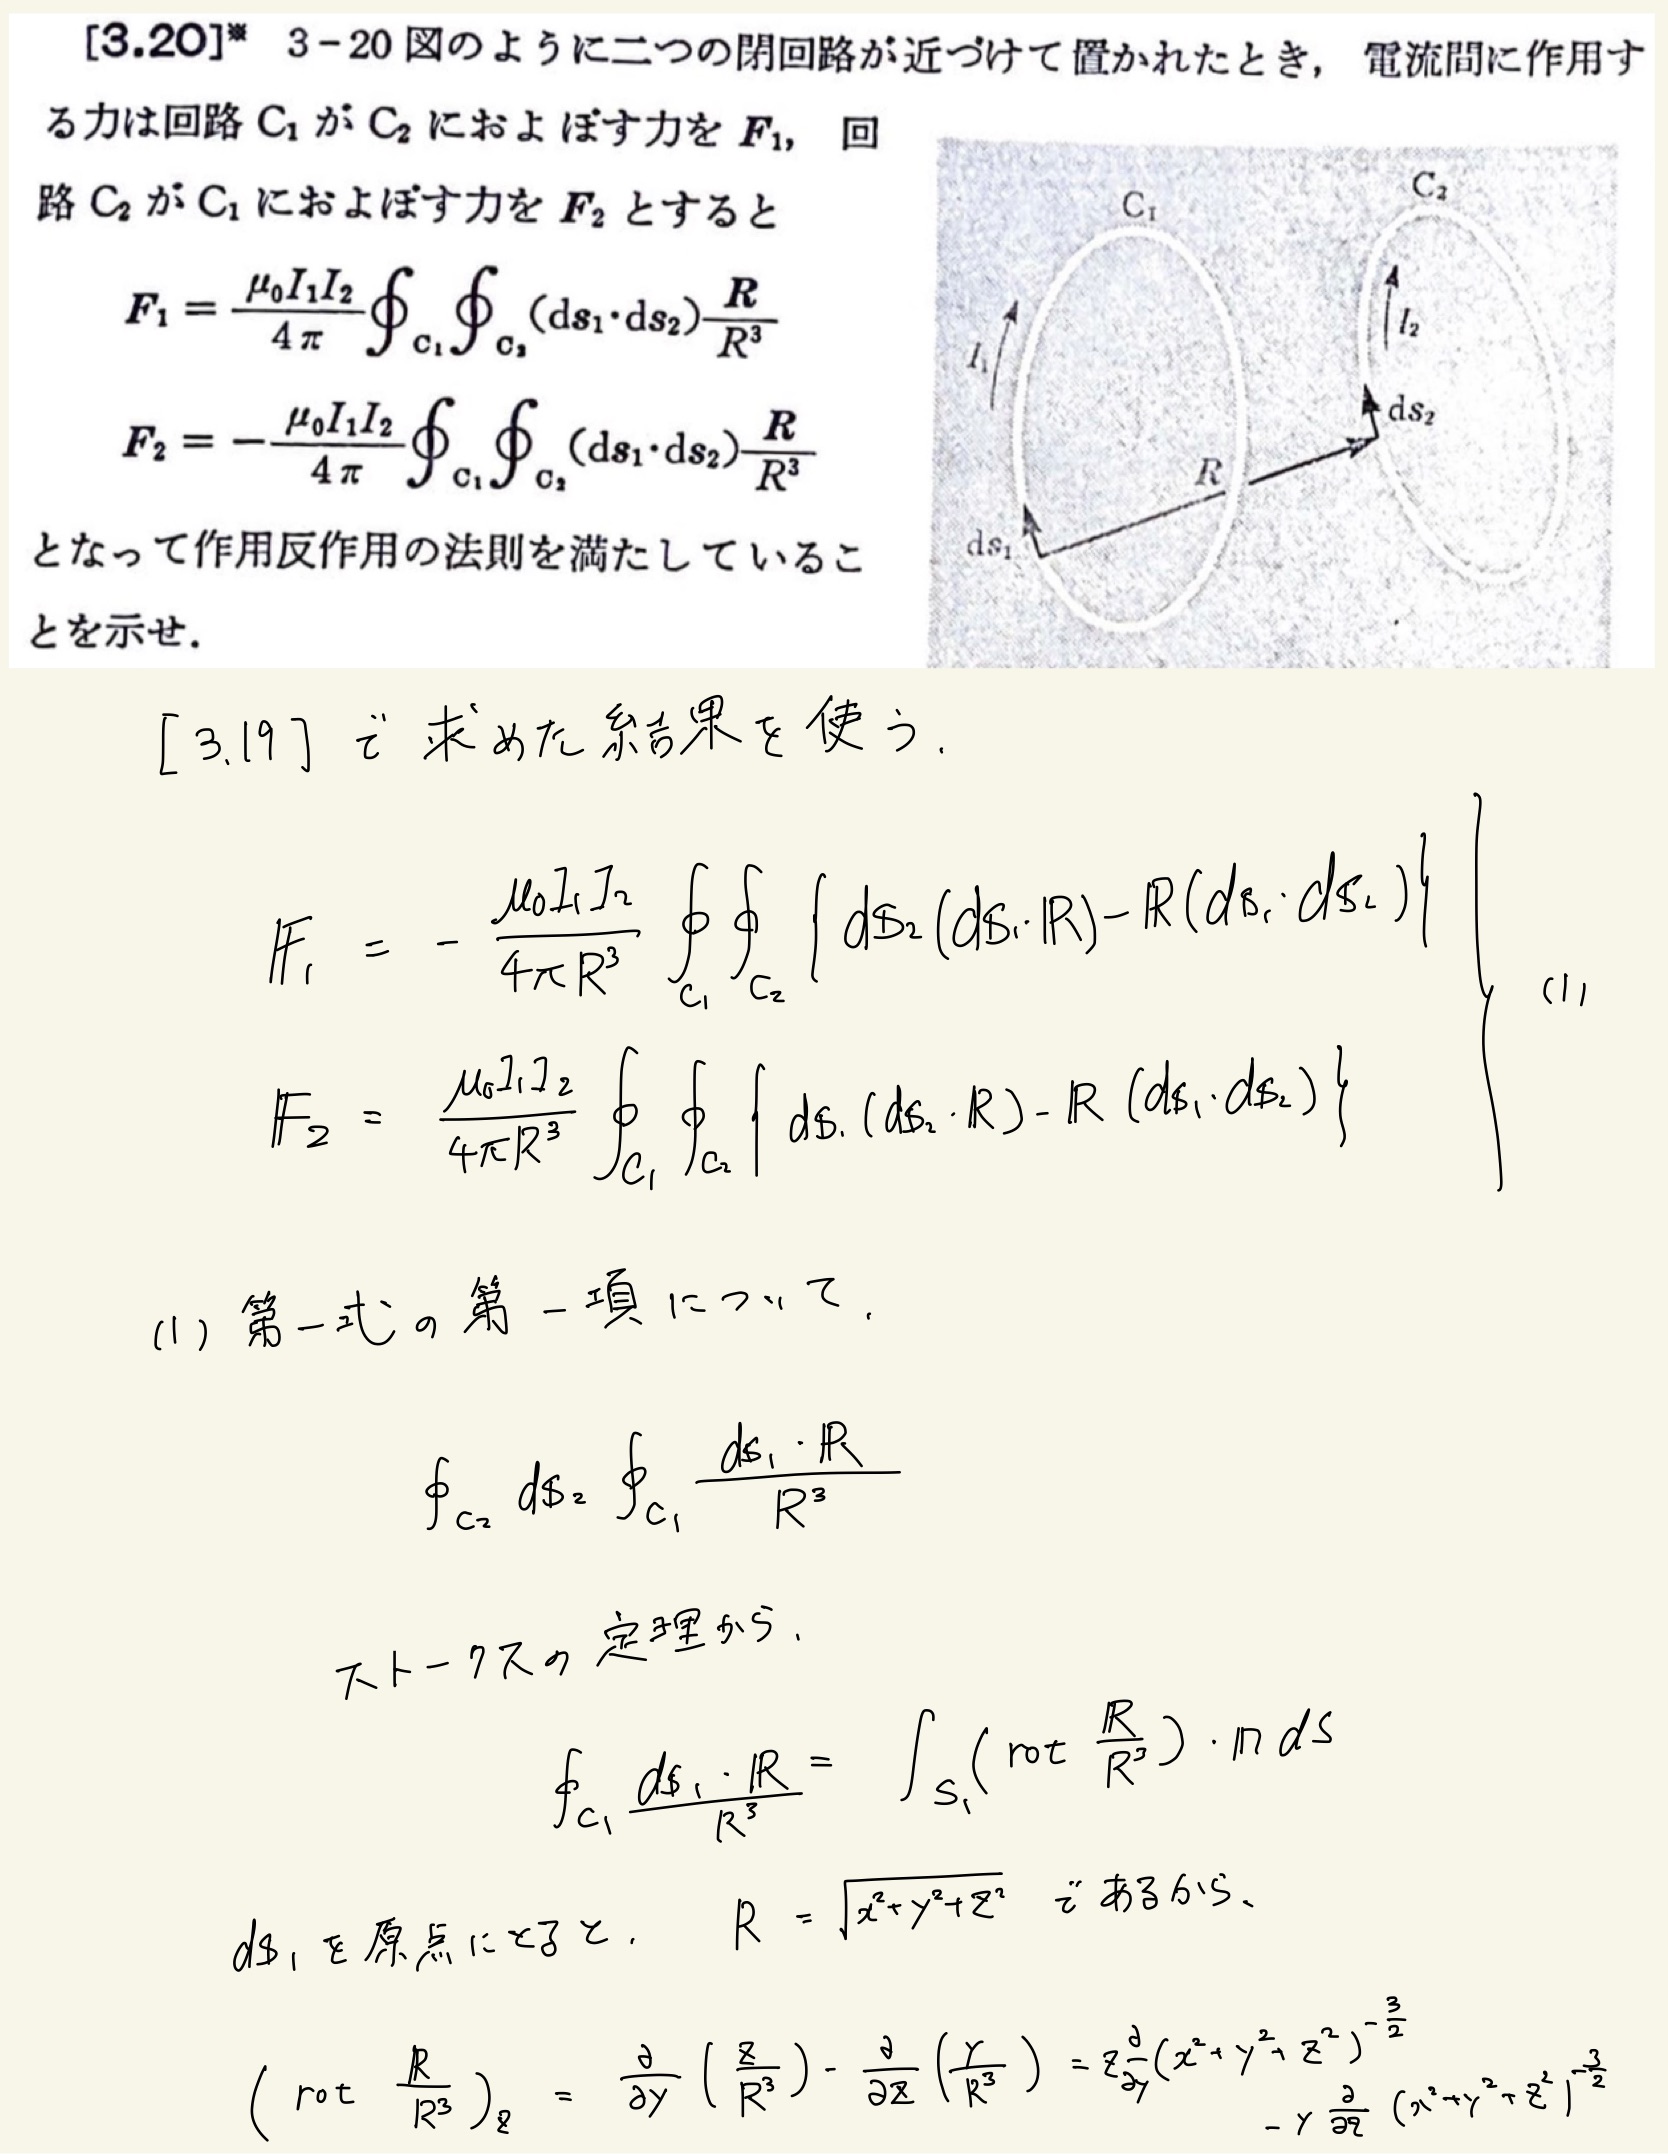 [3.20]※ 3-20 図のように二つの閉回路が近づけて置かれたとき, 電流間に作用す
る力は回路 C₁ が C₂ におよぼす力を F₁, 回
路 C₂ が C₁ におよぼす力を F₂ とすると
F₁ = μ₀I₁I₂/4π ∮C₁∮C₂ (ds₁·ds₂) R/R³
F₂ = −μ₀I₁I₂/4π ∮C₁∮C₂ (ds₁·ds₂) R/R³
となって作用反作用の法則を満たしているこ
とを示せ.
C₁
C₂
I₁
I₂
ds₂
R
ds₁
[3.19] で求めた結果を使う.
F₁ = − μ₀I₁I₂/4πR³ ∮C₁ ∮C₂ { ds₂(ds₁·R) − R(ds₁·ds₂) }
(1)
F₂ = μ₀I₁I₂/4πR³ ∮C₁ ∮C₂ { ds₁(ds₂·R) − R(ds₁·ds₂) }
(1) 第一式の第一項について.
∮C₂ ds₂ ∮C₁ ds₁·R/R³
ストークスの定理から.
∮C₁ ds₁·R/R³ = ∫S₁ (rot R/R³)·n dS
ds₁を原点にとると. R = √(x²+y²+z²) であるから、
(rot R/R³)z = ∂/∂y (z/R³) − ∂/∂z (y/R³) = z ∂/∂y (x²+y²+z²)^(−3/2)
− y ∂/∂z (x²+y²+z²)^(−3/2)